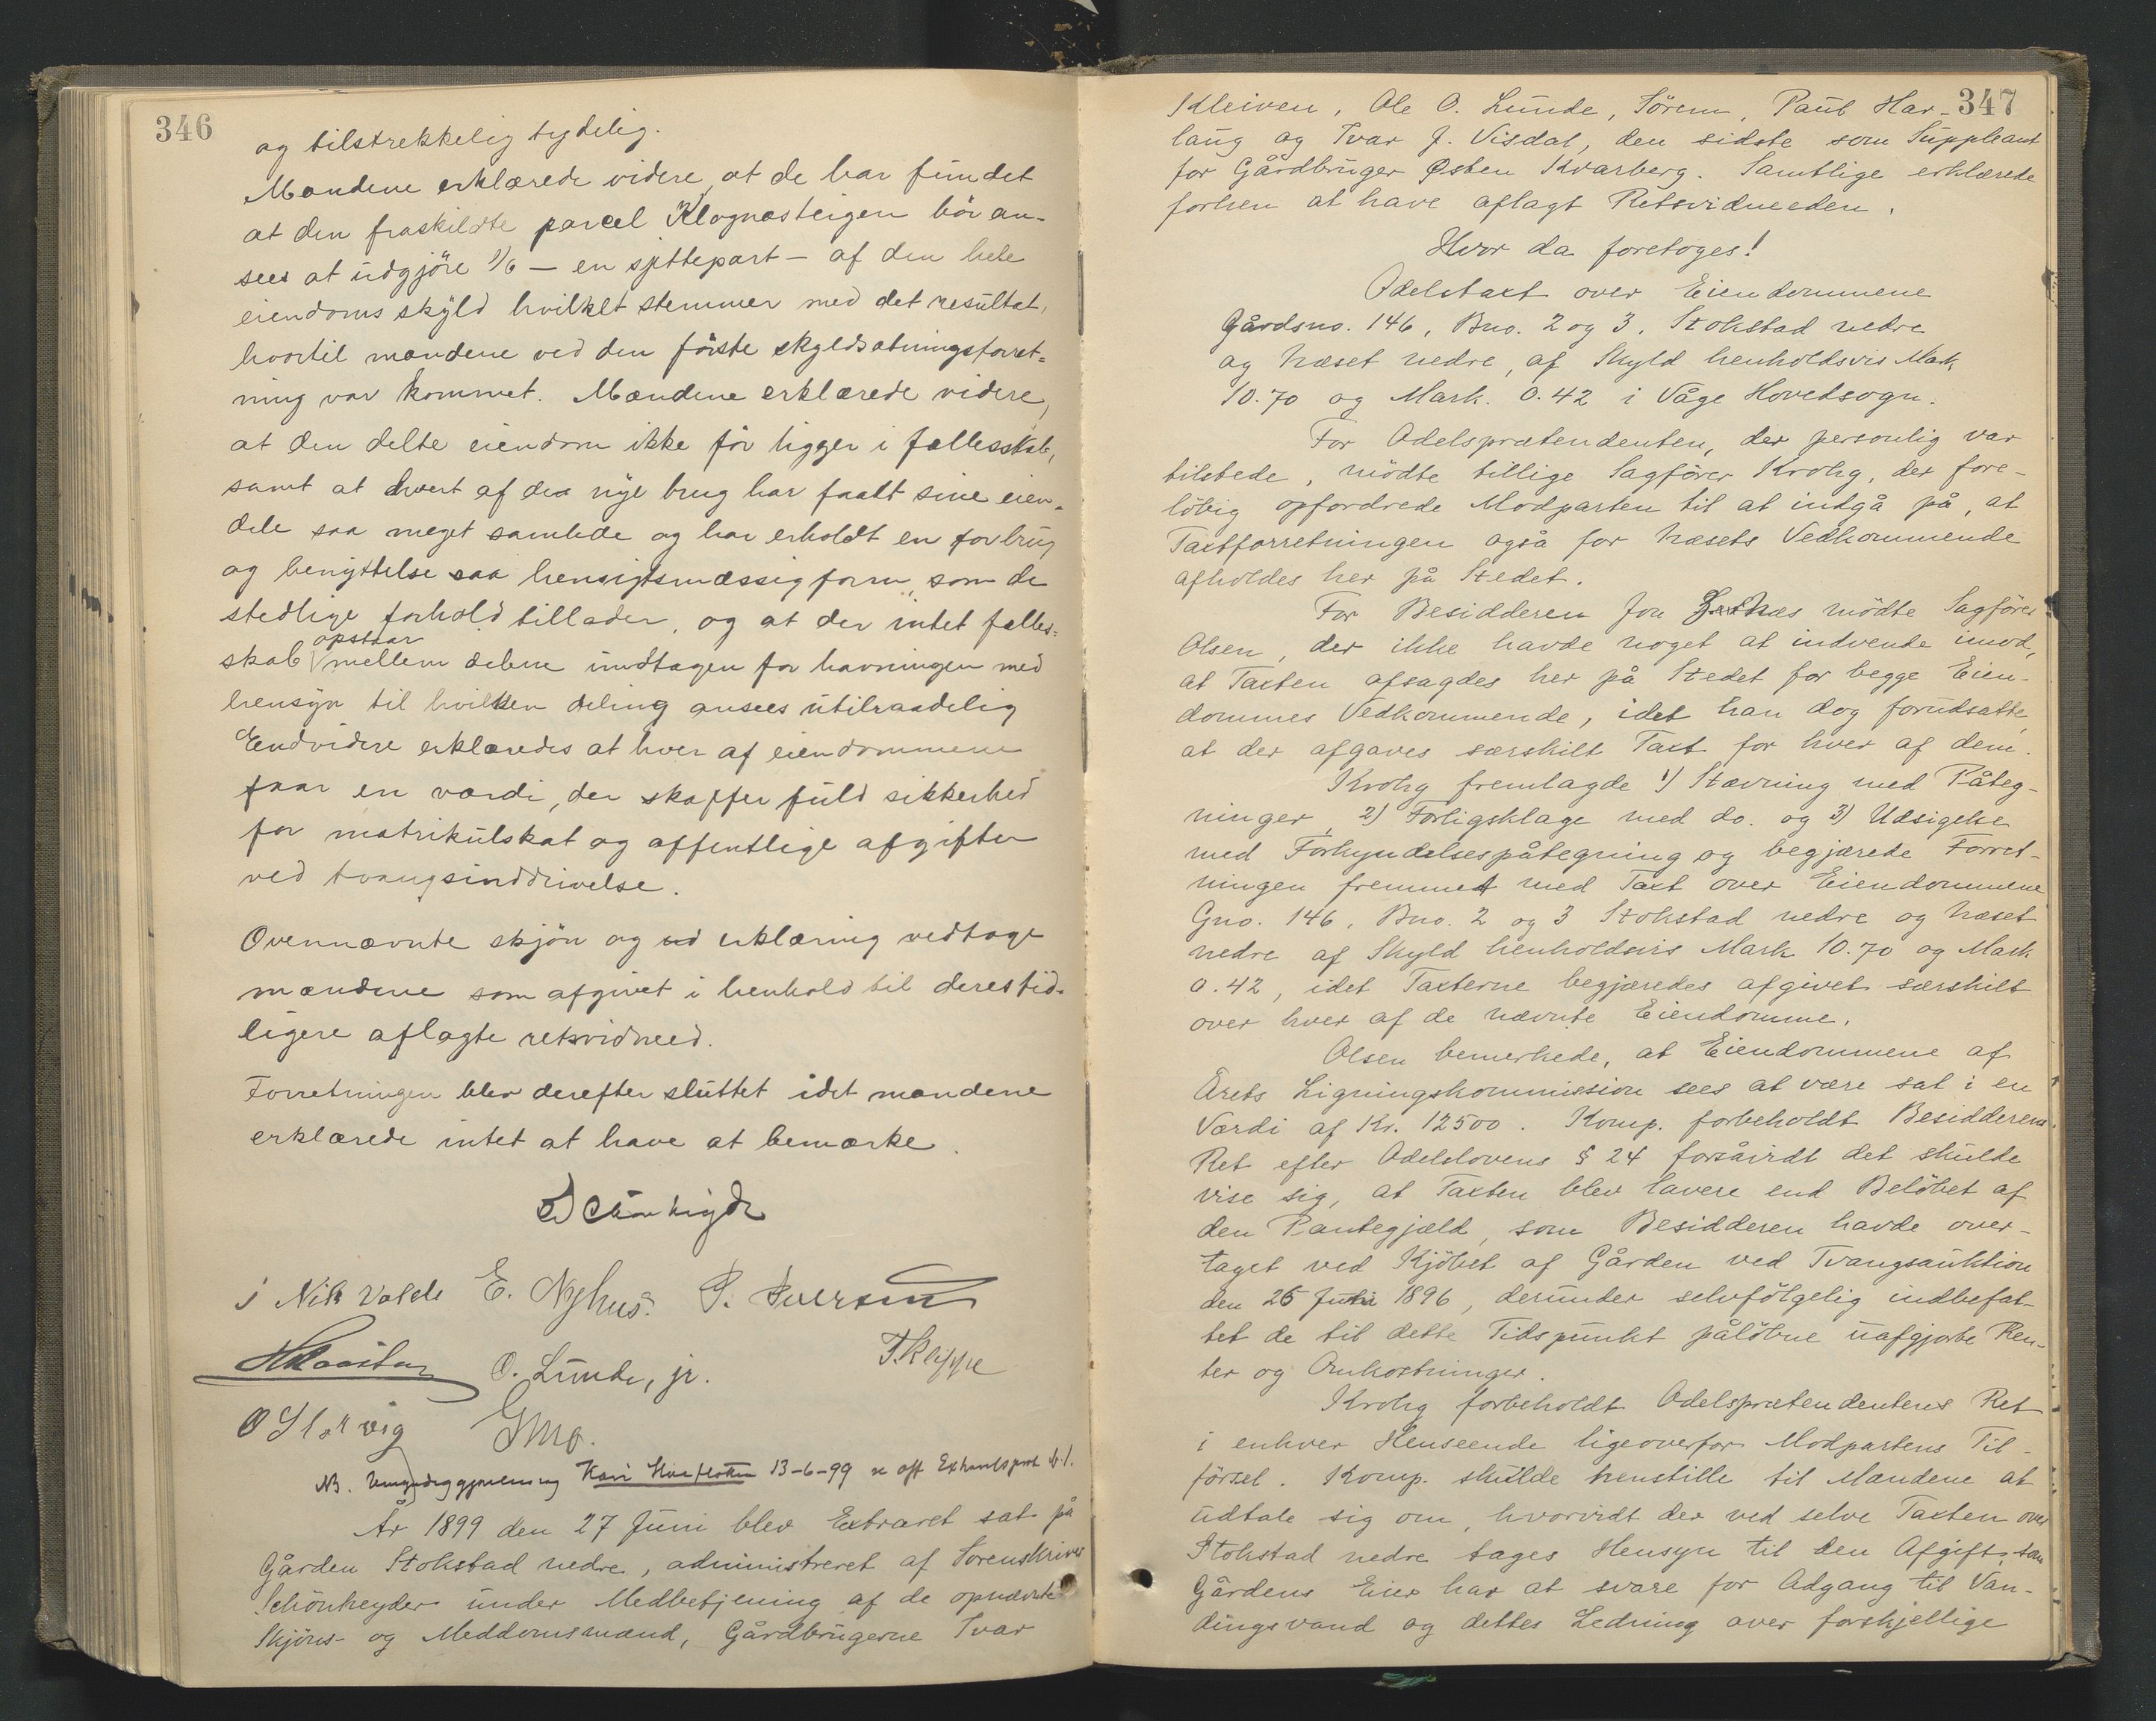 346
og tilstrekkelig tydelig.
Mændene erklærede videre, at de har fundet
at den fraskildte parcel Klognæsteigen bör an-
sees at udgjöre 1/6 – en sjettepart – af den hele
eiendoms skyld hvilket stemmer med det resultat,
hvortil mændene ved den förste skyldsætningsforret-
ning var kommet. Mændene erklærede videre,
at den delte eiendom ikke för ligger i fællesskab,
samt at hvert af de nye brug har faatt sine eien-
dele saa meget samlede og har erholdt en for brug
og benyttelse saa hensigtsmæssig form, som de
stedlige forhold tillader, og at der intet fælles-
skab opstaar mellem delene undtagen for havningen med
hensyn til hvilken deling ansees utilraadelig
Endvidere erklæredes at hver af eiendommene
faar en værdi, der skaffer fuld sikkerhed
for matrikulskat og offentlige afgifter
ved tvangsinddrivelse.
Ovennævnte skjön og ud erklæring vedtoge
mændene som afgivet i henhold til deres tid-
ligere aflagte retsvidneed.
Forretningen blev derefter sluttet idet mændene
erklærede intet at have at bemærke.
Schönheyder
Nik Valde E. Nyhus. P. Iversen
O. Lunde, jr. T. Kleppe
O Slotvig
NB. Umyndiggjørelse Kari 13-6-99
År 1899 den 27 Juni blev Extraret sat på
Gården Stokstad nedre, administreret af Sorenskriver
Schönheyder under Medbetjening af de opnævnte
Skjöns- og Meddomsmænd, Gårdbrugerne Ivar
347
Kleiven, Ole O. Lunde, Sörem, Paul Har-
laug og Ivar J. Visdal, den sidste som Suppleant
for Gårdbruger Østen Kvarberg. Samtlige erklærede
forhen at have aflagt Retsvidneeden.
Hvor da foretoges!
Odelstaxt over Eiendommene
Gårdsno. 146, Bno. 2 og 3, Stokstad nedre
og Næset nedre, af Skyld henholdsvis Mark
10.70 og Mark. 0.42 i Våge Hovedsogn.
For Odelsprætendenten, der personlig var
tilstede, mödte tillige Sagförer Krohg, der fore-
löbig opfordrede Modparten til at indgå på, at
Taxtforretningen også for Næsets Vedkommende
afholdes her på Stedet.
For Besidderen Jon mödte Sagförer
Olsen, der ikke havde noget at indvende imod,
at Taxten afsagdes her på Stedet for begge Eien-
dommes Vedkommende, idet han dog forudsatte,
at der afgaves særskilt Taxt for hver af dem.
Krohg fremlagde 1) Stævning med Påteg-
ninger, 2) Forligsklage med do. og 3) Udsigelse
med Forkyndelsespåtegning og begjærede Forret-
ningen fremmet med Taxt over Eiendommene
Gno. 146, Bno. 2 og 3 Stokstad nedre og Næset
nedre af Skyld henholdsvis Mark 10.70 og Mark
0.42, idet Taxterne begjæredes afgivet særskilt
over hver af de nævnte Eiendomme.
Olsen bemerkede, at Eiendommene af
Årets Ligningskommission sees at være sat i en
Værdi af Kr. 12500. Komp. forbeholdt Besidderens
Ret efter Odelslovens § 24 forsåvidt det skulde
vise sig, at Taxten blev lavere end Belöbet af
den Pantegjæld, som Besidderen havde over-
taget ved Kjöbet af Gården ved Tvangsauktion
den 25 Juni 1896, derunder selvfölgelig indbefat-
tet de til dette Tidspunkt pålöbne uafgjorte Ren-
ter og Omkostninger.
Krohg forbeholdt Odelsprætendentens Ret
i enhver Henseende ligeoverfor Modpartens Til-
försel. Komp. skulde henstille til Mændene at
udtale sig om, hvorvidt der ved selve Taxten over
Stokstad nedre tages Hensyn til den Afgift, som
Gårdens Eier har at svare for Adgang til Van-
dingsvand og dettes Ledning over forskjellige